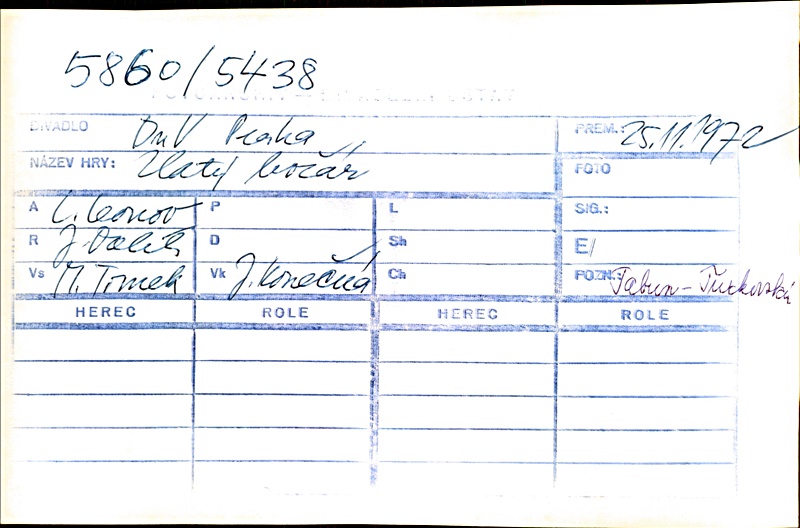 5860/5438
DIVADLO DnV Praha PREM.: 25.11.1972
NÁZEV HRY: Zlatý kočár FOTO
A L. Leonov P L SIG.:
R J. Dalík D Sh E/
Vs M. Tomek Vk J. Konečná Ch POZN.: Tabun-Turkovská
HEREC ROLE HEREC ROLE